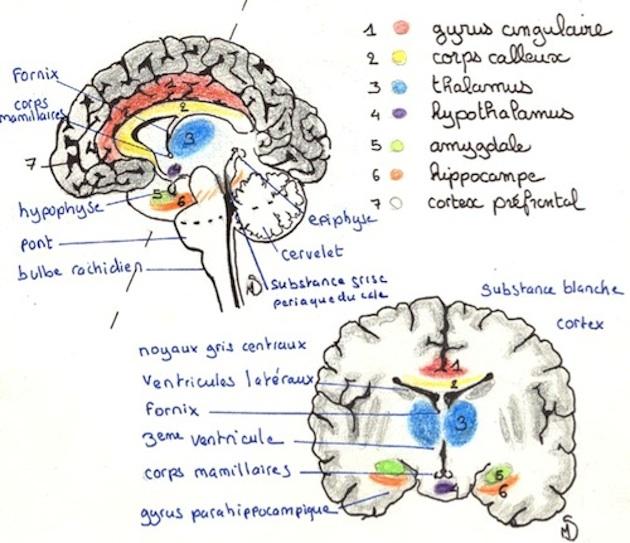 1 gyrus cingulaire
2 corps calleux
3 thalamus
4 hypothalamus
5 amygdale
6 hippocampe
7 cortex préfrontal
Fornix
corps
mamillaires
7
2
3
5
6
hypophyse
pont
bulbe rachidien
epiphyse
cervelet
substance grise
periaqueducale
substance blanche
cortex
noyaux gris centraux
ventricules latéraux
fornix
3eme ventricule
corps mamillaires
gyrus parahippocampique
1
2
3
4
5
6